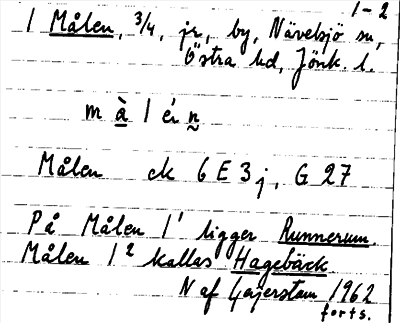 1-2
1 Målen, 3/4, jr, by, Nävelsjö sn,
Östra hd, Jönk. l.
m à l é n
Målen ek 6 E 3 j, G 27
På Målen 1¹ ligger Runnerum.
Målen 1² kallas Hagebäck
N af Geijerstam 1962
forts.